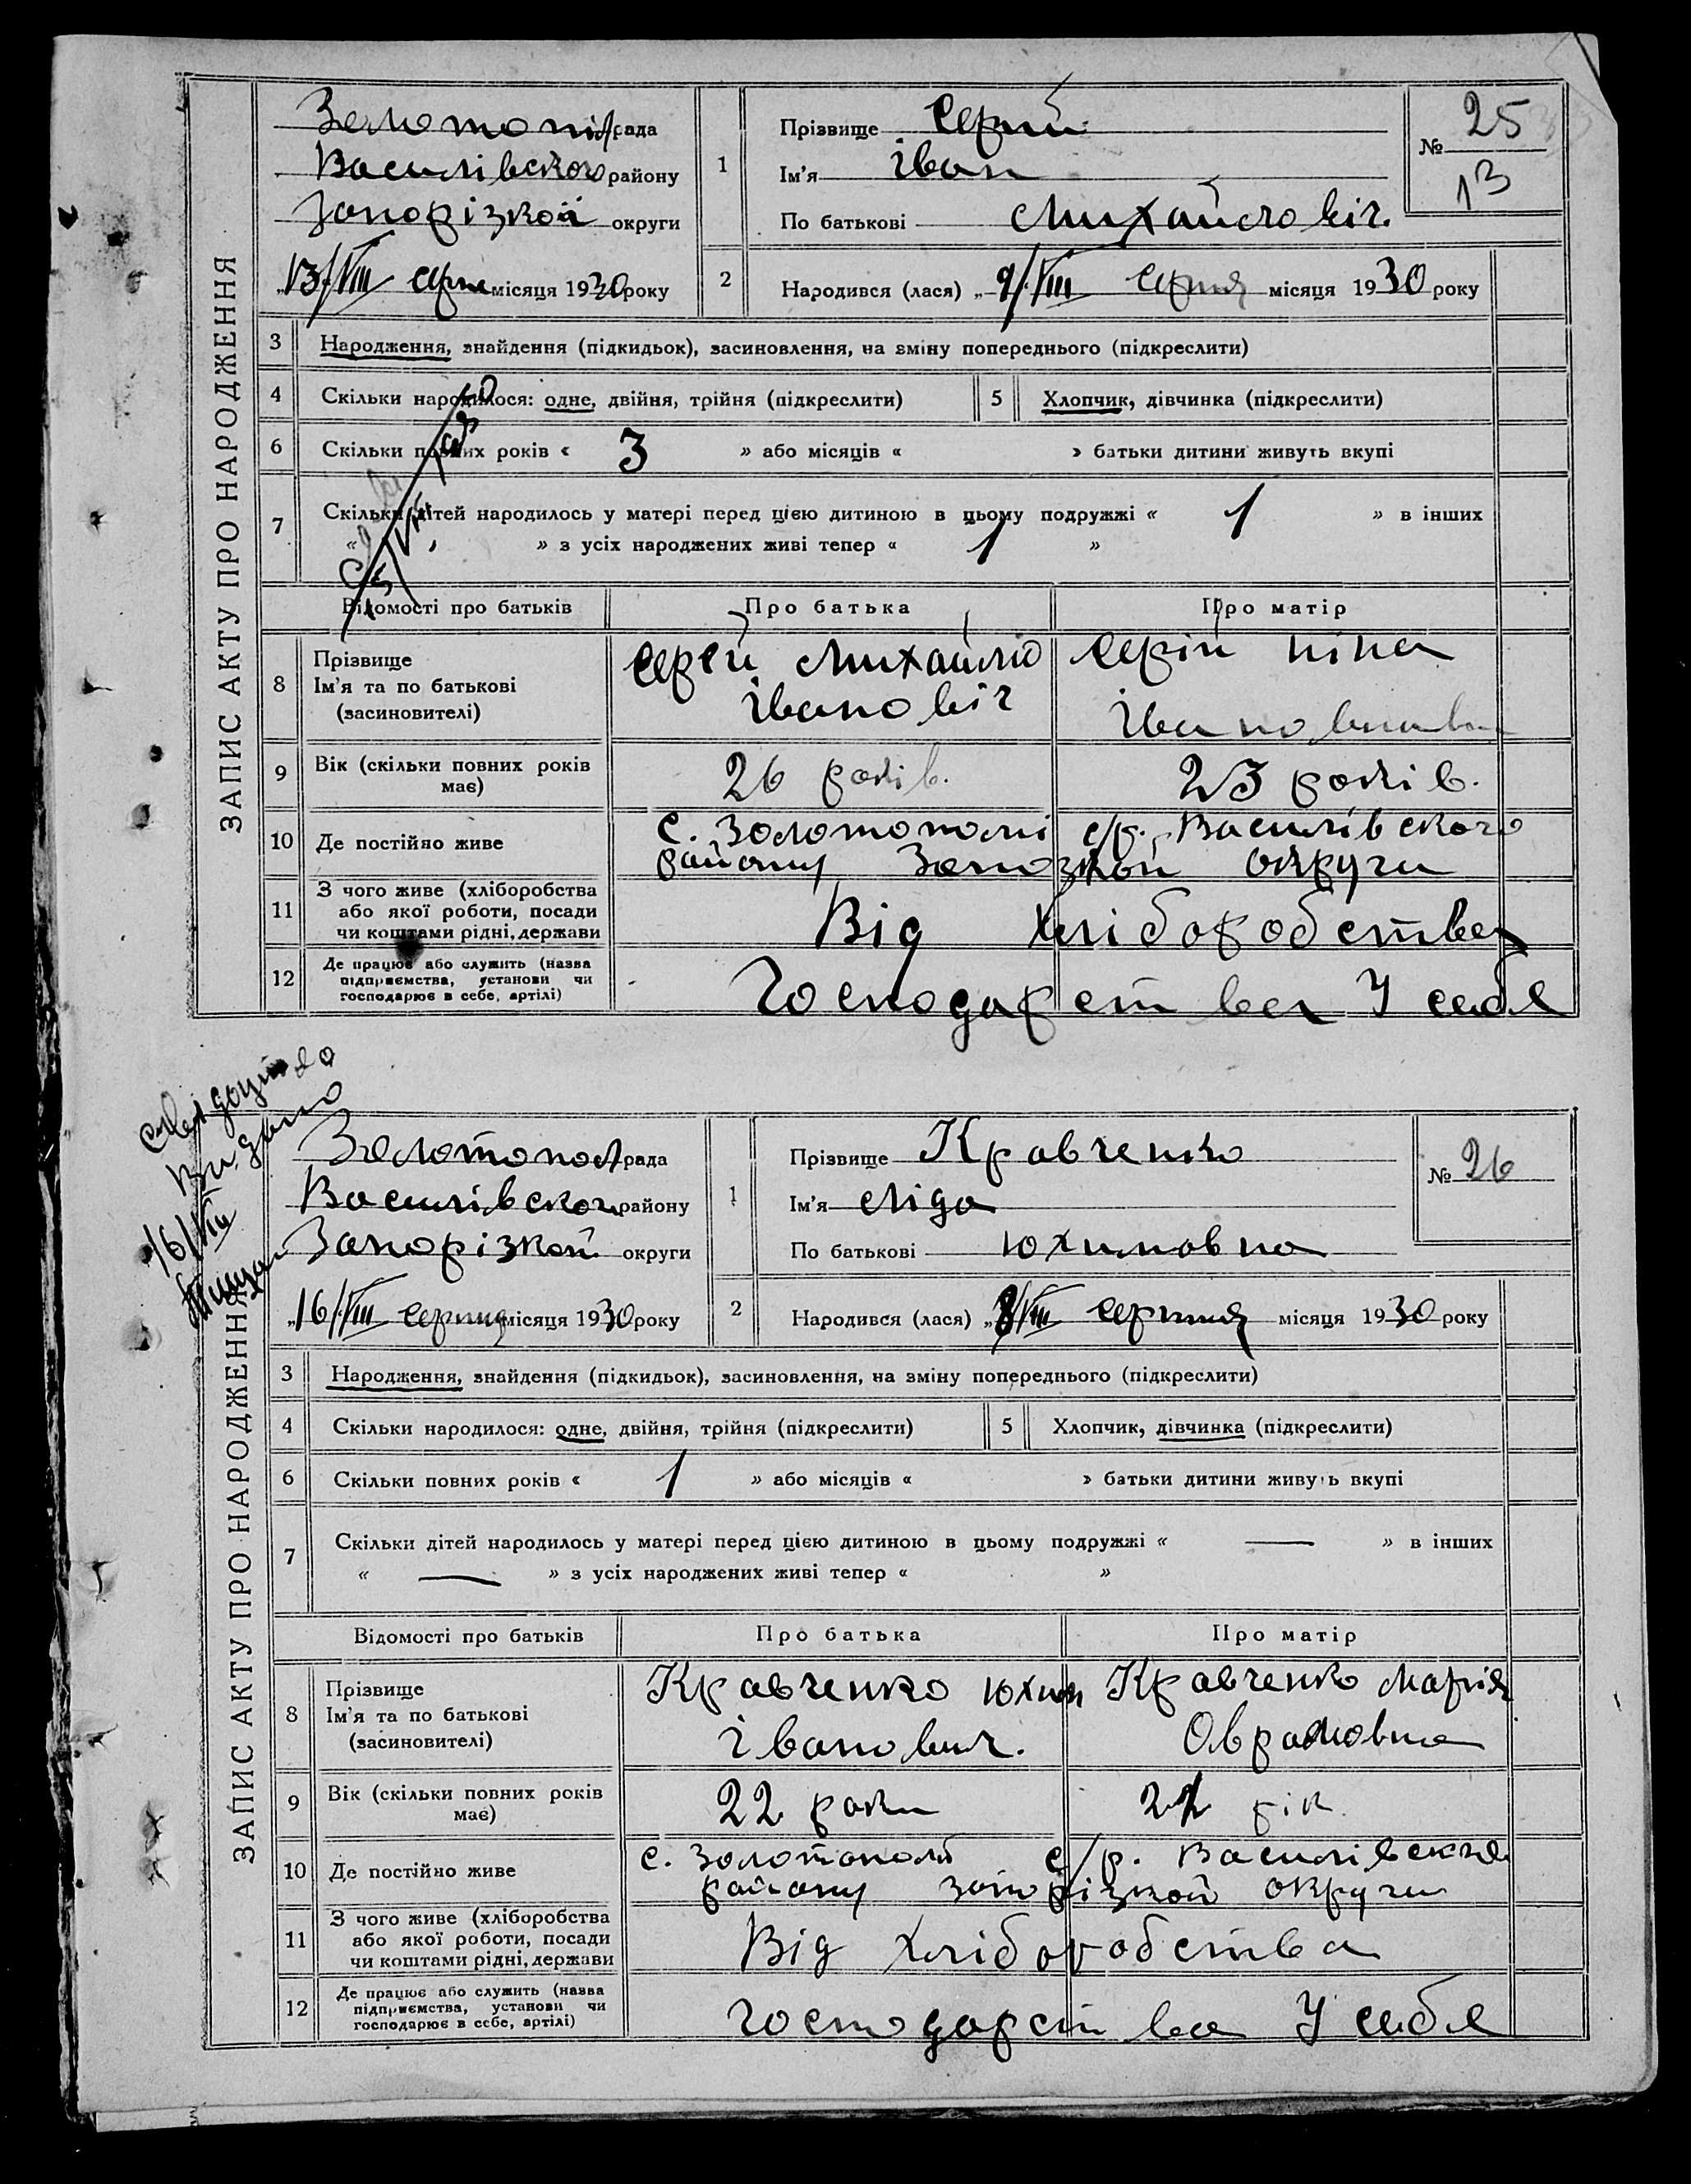 ЗАПИС АКТУ ПРО НАРОДЖЕННЯ
Золотопіл рада
Василівского району
Запорізкой округи
„13/VIII серпня місяця 1930 року
1 Прізвище Серій
Ім'я Іван
По батькові Михайловіч.
№ 25
13
2 Народився (лася) „9/VIII серпня місяця 1930 року
3 Народження, знайдення (підкидьок), засиновлення, на зміну попереднього (підкреслити)
4 Скільки народилося: одне, двійня, трійня (підкреслити) 5 Хлопчик, дівчинка (підкреслити)
6 Скільки повних років « 3 » або місяців « » батьки дитини живуть вкупі
7 Скільки дітей народилось у матері перед цією дитиною в цьому подружжі « 1 » в інших
« » з усіх народжених живі тепер « 1 »
Відомості про батьків Про батька Про матір
8 Прізвище
Ім'я та по батькові
(засиновителі)
Серій Михайло
Івановіч
Серій Ніна
Івановна
9 Вік (скільки повних років
має)
26 років.
23 років.
10 Де постійно живе
с. Золотополі с/р. Василівского
району Запозкой округи
11 З чого живе (хліборобства
або якої роботи, посади
чи коштами рідні, держави
Від хліборобства
12 Де працює або служить (назва
підприємства, установи чи
господарює в себе, артілі)
Господарства У себе
ЗАПИС АКТУ ПРО НАРОДЖЕННЯ
видано
16/VIII
Золотопол рада
Василівского району
Запорізкой округи
„16/VIII серпня місяця 1930 року
1 Прізвище Кравченко
Ім'я Ліда
По батькові Юхимовна
№ 26
2 Народився (лася) „8/VIII серпня місяця 1930 року
3 Народження, знайдення (підкидьок), засиновлення, на зміну попереднього (підкреслити)
4 Скільки народилося: одне, двійня, трійня (підкреслити) 5 Хлопчик, дівчинка (підкреслити)
6 Скільки повних років « 1 » або місяців « » батьки дитини живуть вкупі
7 Скільки дітей народилось у матері перед цією дитиною в цьому подружжі « — » в інших
« — » з усіх народжених живі тепер « »
Відомості про батьків Про батька Про матір
8 Прізвище
Ім'я та по батькові
(засиновителі)
Кравченко Юхим
Іванович.
Кравченко Марія
Оврамовна
9 Вік (скільки повних років
має)
22 роки
рік
10 Де постійно живе
с. Золотополь с/р. Василівского
району Запорізкой округи
11 З чого живе (хліборобства
або якої роботи, посади
чи коштами рідні, держави
Від хліборобства
12 Де працює або служить (назва
підприємства, установи чи
господарює в себе, артілі)
Господарства У себе